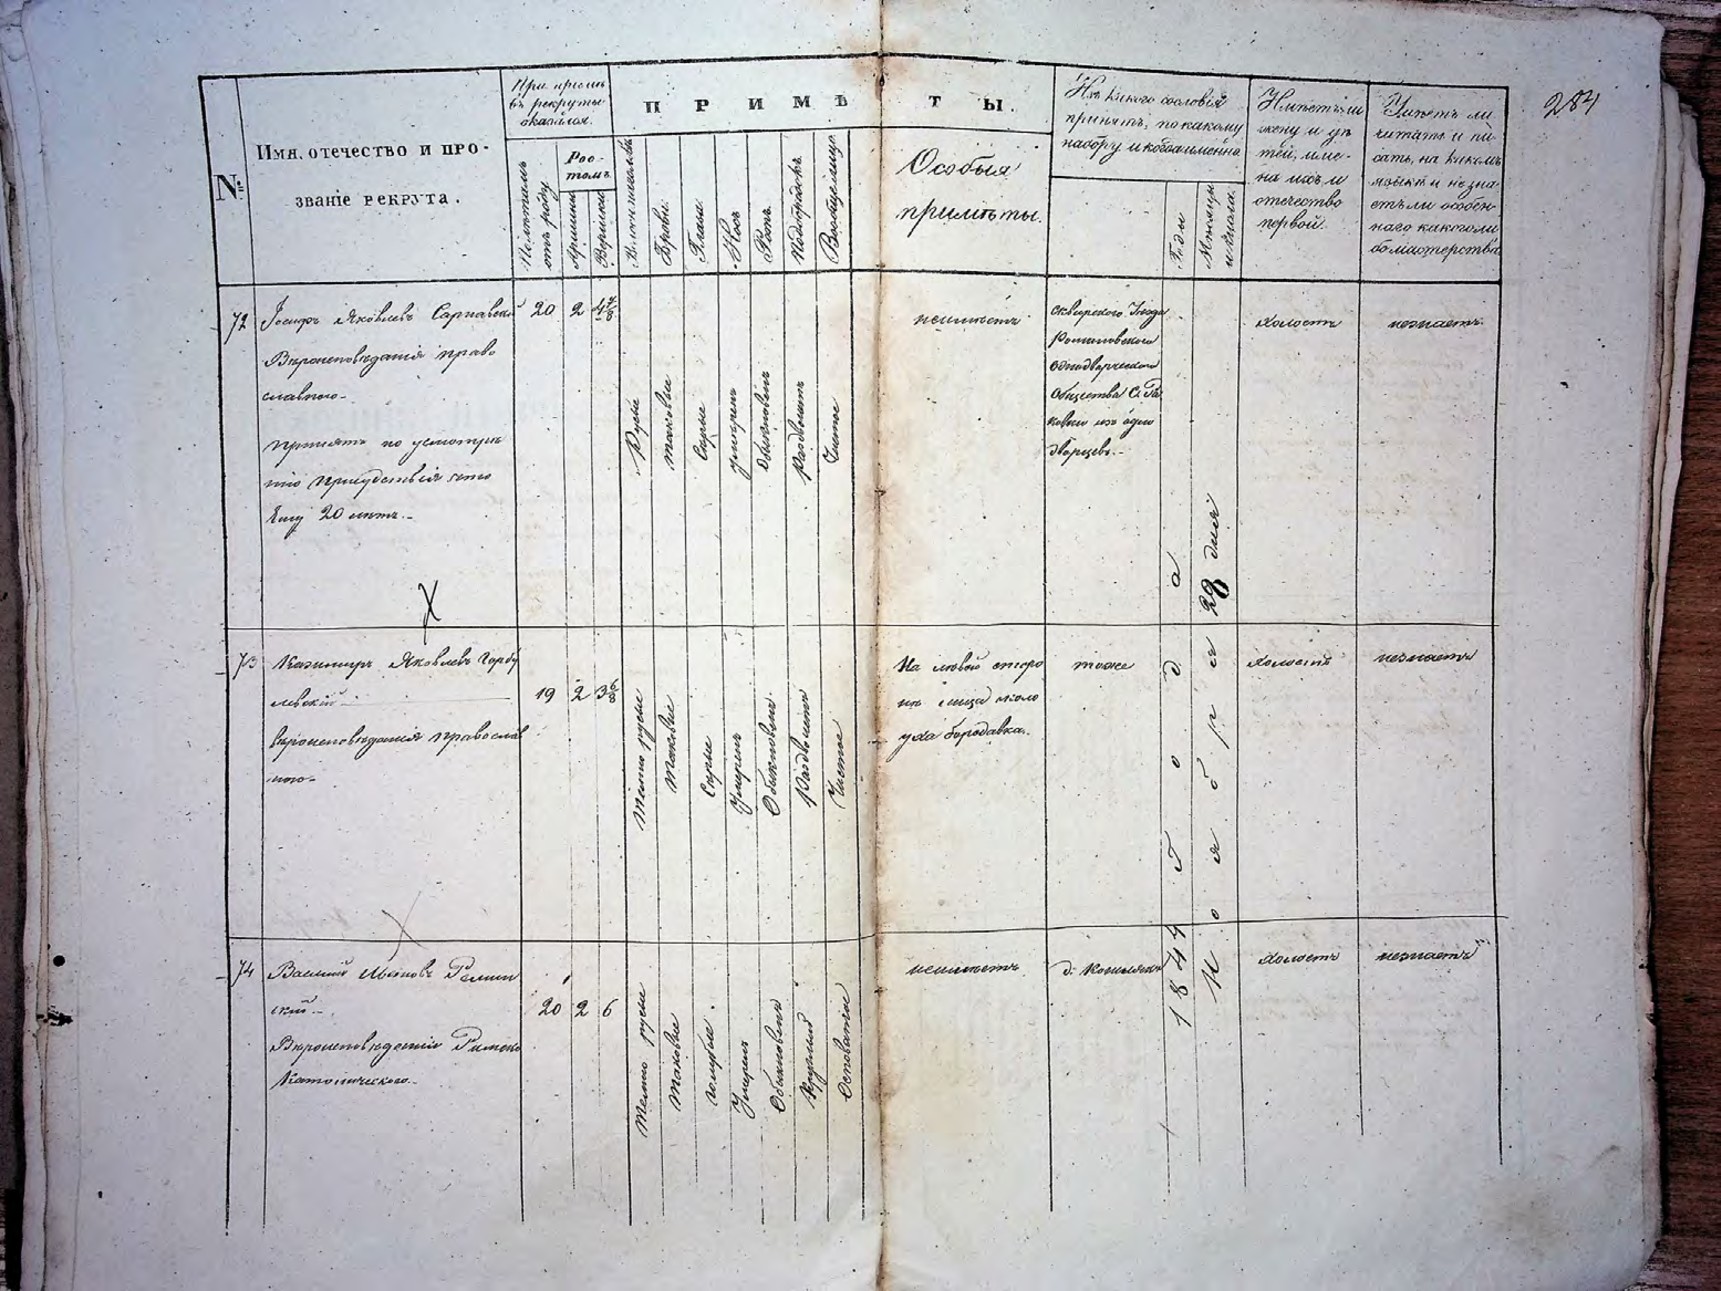 284
№
Имя, отечество и про-
званіе рекрута.
При пріемѣ
въ рекруты
оказался.
Лѣтъ
отъ роду
Рос-
томъ
Аршины
Вершки
ПРИМѢТЫ.
Брови.
Глаза.
Носъ
Ротъ.
Подбородокъ
Вообще лице
Особыя
примѣты.
Изъ какого сословія
принятъ, по какому
набору и когда именно.
Годы
Мѣсяцы
и числа.
Имѣетъ ли
жену и дѣ
тей, име-
на ихъ и
отечество
первой.
Умѣетъ ли
читать и пи-
сать, на какомъ
языкѣ и не зна-
етъ ли особен-
наго какого ли
бо мастерства
72
Іосифъ Яковлевъ
Вѣроисповѣданія право
славного-
принятъ по усмотрѣ
нію Присудствія что
Ему 20 лѣтъ.-
20
2
4 4/8
Русые
таковые
Сѣрые
умѣренъ
обыкновенъ
раздвоенъ
Чистое
неимѣетъ
Сквирского Уѣзда
Романовского
однодворческого
Общества
изъ одно
дворцевъ.-
холостъ
незнаетъ.
73
Казимиръ Яковлевъ Горбу
левскій
вѣроисповѣданія православ
ного-
19
2
3 6/8
Темно русые
таковые
Сѣрые
Умѣренъ
Обыкновенъ
раздвоенъ
Чистое
На лѣвой сторо
нѣ лица около
уха бородавка.
тоже
холостъ
незнаетъ
74
Василій
скій-
Вѣроисповѣданія Римско
Католическаго.-
20
2
6
темно русые
таковые
голубые
Умѣренъ
Обыкновенъ
Круглый
Осповатое
неимѣетъ
1844 Года
Ноября 28 дня
холостъ
незнаетъ